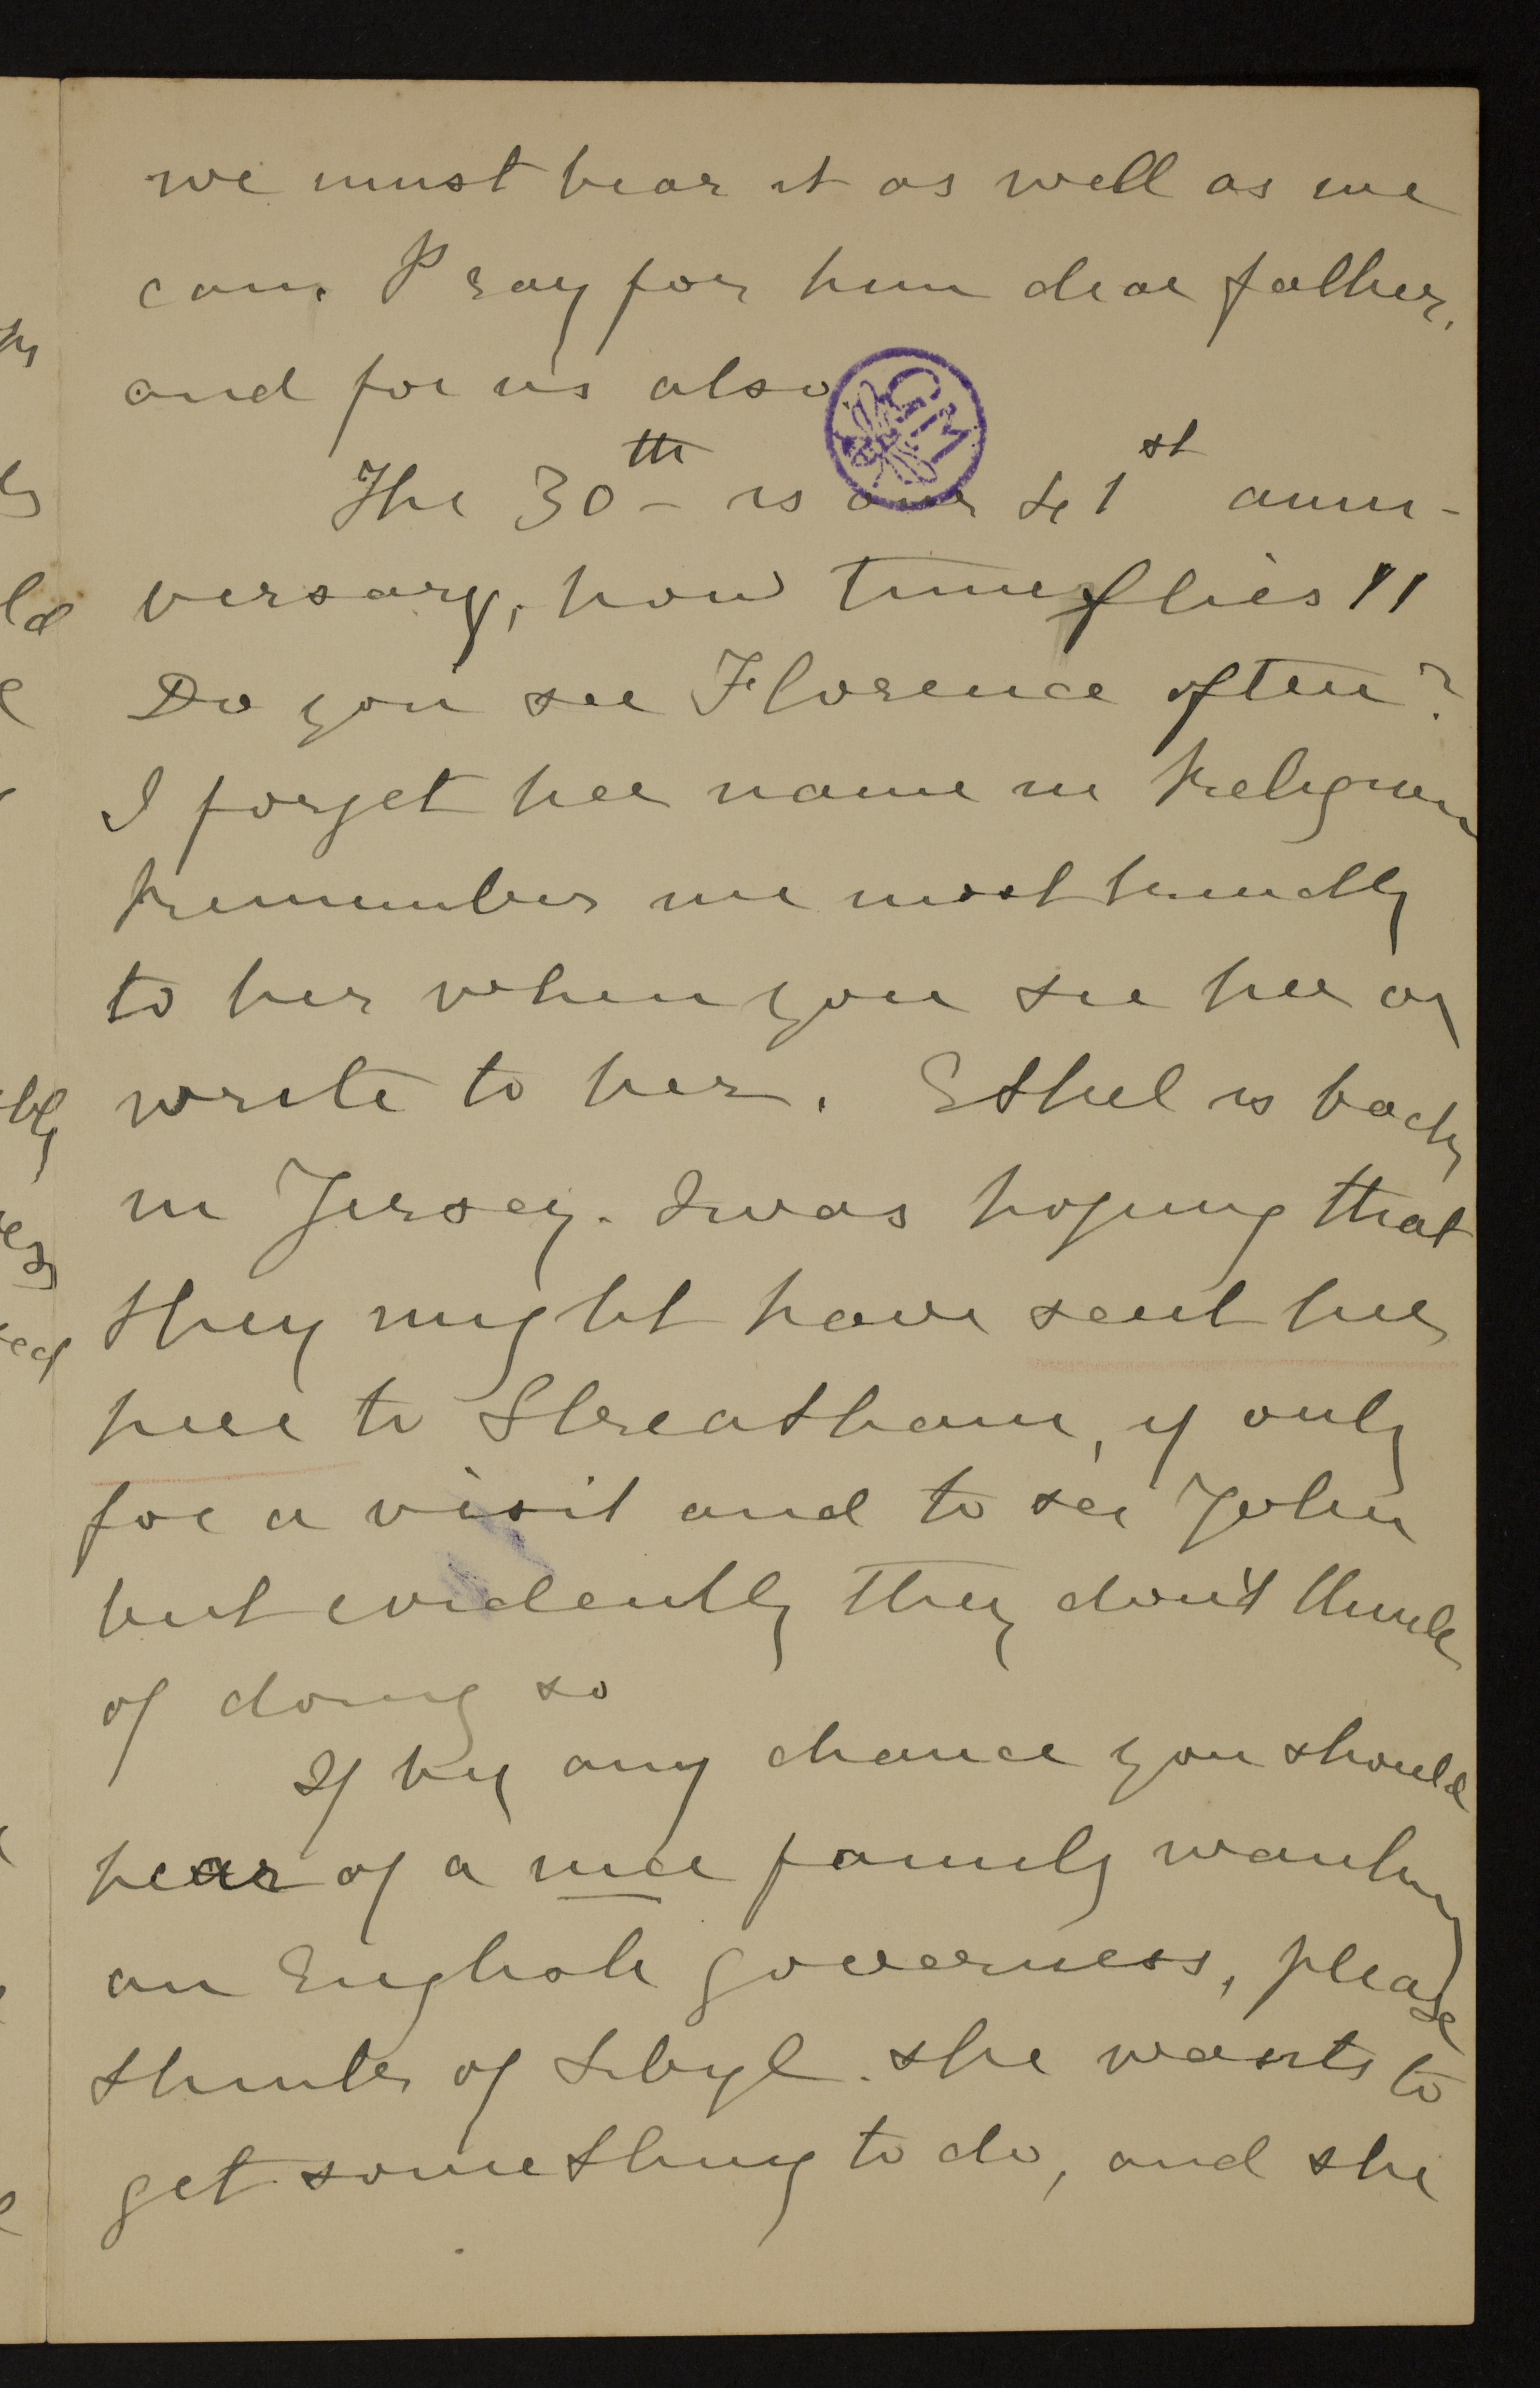 we must bear it as well as we
can. Pray for him dear father,
and for us also
GM
The 30th is our 41st anni-
versary, how time flies!!
Do you see Florence often?
I forget her name in Religion
Remember me most kindly
to her when you see her or
write to her. Ethel is back
in Jersey. I was hoping that
they might have sent her
here to Streatham, if only
for a visit and to see John
but evidently they don't think
of doing so
If by any chance you should
hear of a nice family wanting
an English governess, please
think of Sibyl. she wants to
get something to do, and she